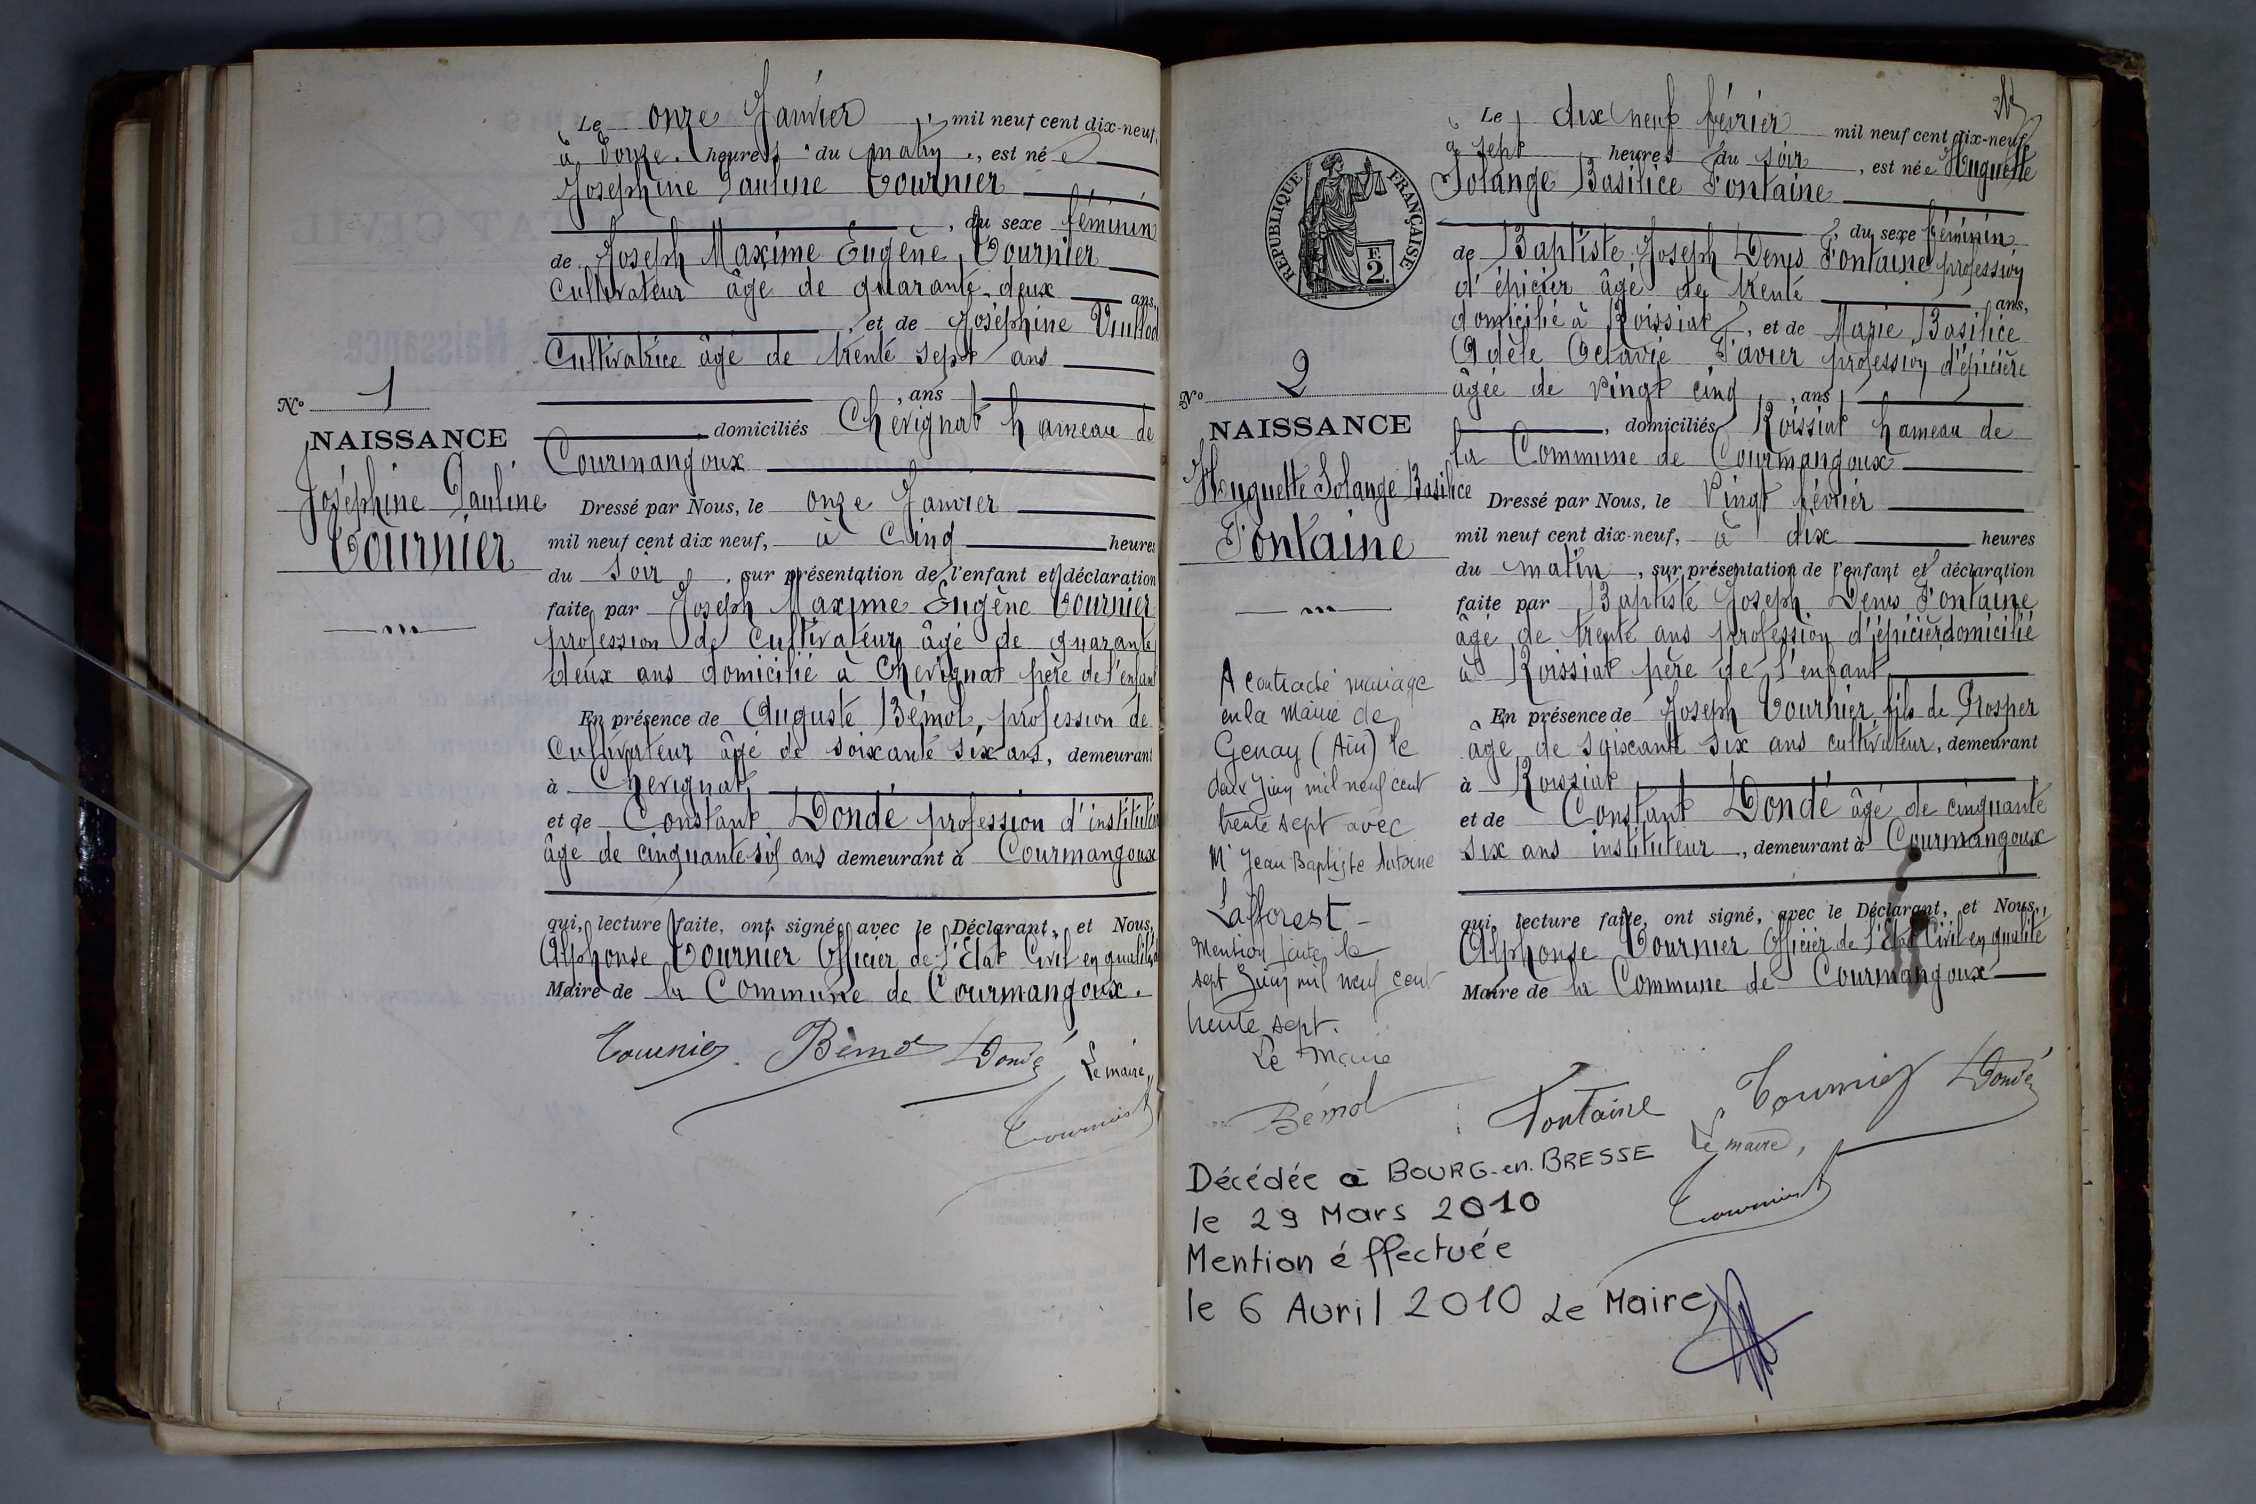 Le onze Janvier, mil neuf cent dix-neuf,
à onze heures du matin, est née
Joséphine Pauline Tournier
, du sexe féminin
de Joseph Maxime Eugène Tournier
Cultivateur âgé de quarante deux ans,
, et de Joséphine
Cultivatrice âgé de trente sept ans
, ans
domiciliés Chevignat hameau de
Courmangoux
Nº 1
NAISSANCE
Joséphine Pauline
Tournier
Dressé par Nous, le onze Janvier
mil neuf cent dix neuf, à Cinq heures
du soir, sur présentation de l'enfant et déclaration
faite par Joseph Maxime Eugène Tournier
profession de Cultivateur âgé de quarante
deux ans domicilié à Chevignat père de l'enfant
En présence de Auguste Bémol, profession de
Cultivateur âgé de soixante six ans, demeurant
à Chevignat
et de Constant Dondé profession d'instituteur
âgé de cinquante six ans demeurant à Courmangoux
qui, lecture faite, ont signé avec le Déclarant, et Nous,
Alphonse Tournier Officier de l'Etat Civil en qualité
Maire de la Commune de Courmangoux.
Tournier Bémol Dondé Le maire,
Tournier
Le dix neuf février mil neuf cent dix-neuf,
à sept heures du soir, est née Huguette
Solange Basilice Fontaine
, du sexe féminin
de Baptiste Joseph Denis Fontaine profession
d'épicier âgé de trente ans,
domicilié à Roissiat, et de Marie Basilice
Adèle Octavie Favier profession d'épicière
âgée de vingt cinq, ans
, domiciliés Roissiat hameau de
la Commune de Courmangoux
RÉPUBLIQUE FRANÇAISE
F.
2.
Nº 2
NAISSANCE
Huguette Solange Basilice
Fontaine
Dressé par Nous, le Vingt février
mil neuf cent dix-neuf, à dix heures
du matin, sur présentation de l'enfant et déclaration
faite par Baptiste Joseph Denis Fontaine
âgé de trente ans profession d'épicier domicilié
à Roissiat père de l'enfant
En présence de Joseph Tournier fils de Prosper
âgé de soixante six ans cultivateur, demeurant
à Roissiat
et de Constant Dondé âgé de cinquante
six ans instituteur, demeurant à Courmangoux
qui, lecture faite, ont signé, avec le Déclarant, et Nous,
Alphonse Tournier Officier de l'Etat Civil en qualité
Maire de la Commune de Courmangoux
Fontaine Tournier Dondé
Le maire,
Tournier
A contracté mariage
en la mairie de
Genay (Ain) le
deux Juin mil neuf cent
trente sept avec
Mr Jean Baptiste Antoine
Lafforest
Mention faite le
sept Juin mil neuf cent
trente sept.
Le Maire
Bémol
Décédée à BOURG-en-BRESSE
le 29 Mars 2010
Mention éffectuée
le 6 Avril 2010 Le Maire,